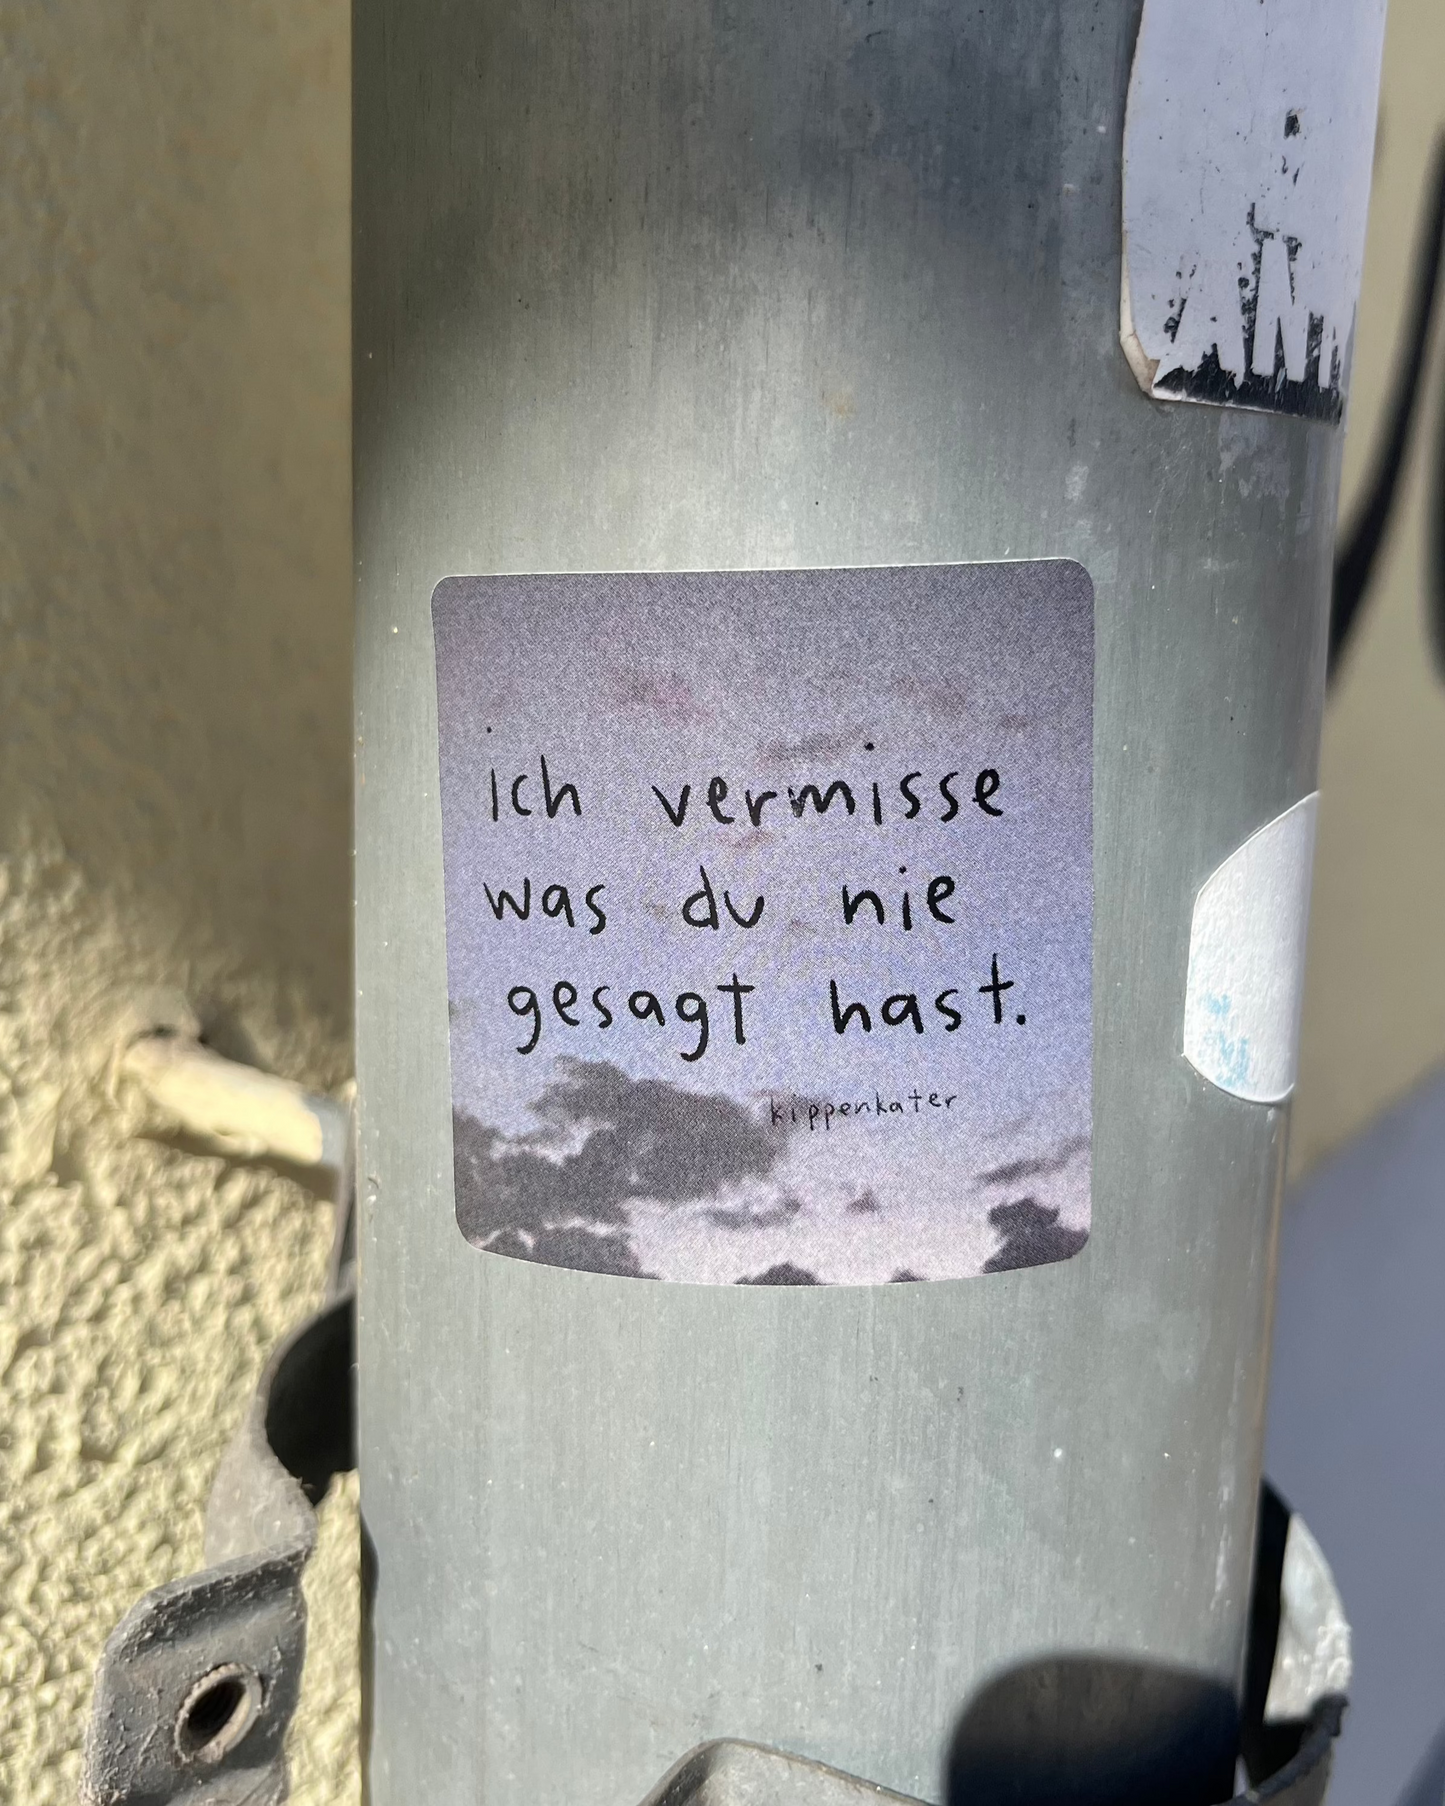 ich vermisse
was du nie
gesagt hast.
kippenkater